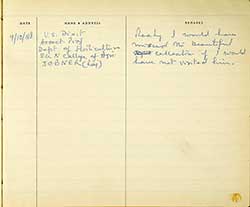 DATE NAME & ADDRESS REMARKS
U.S. Dixit
Asstt Prof
Dept of Horticulture
S.K.N College of Agri
JOBNER (Raj)
Really I would have
missed the beautiful
collection if I would
have not visited him.